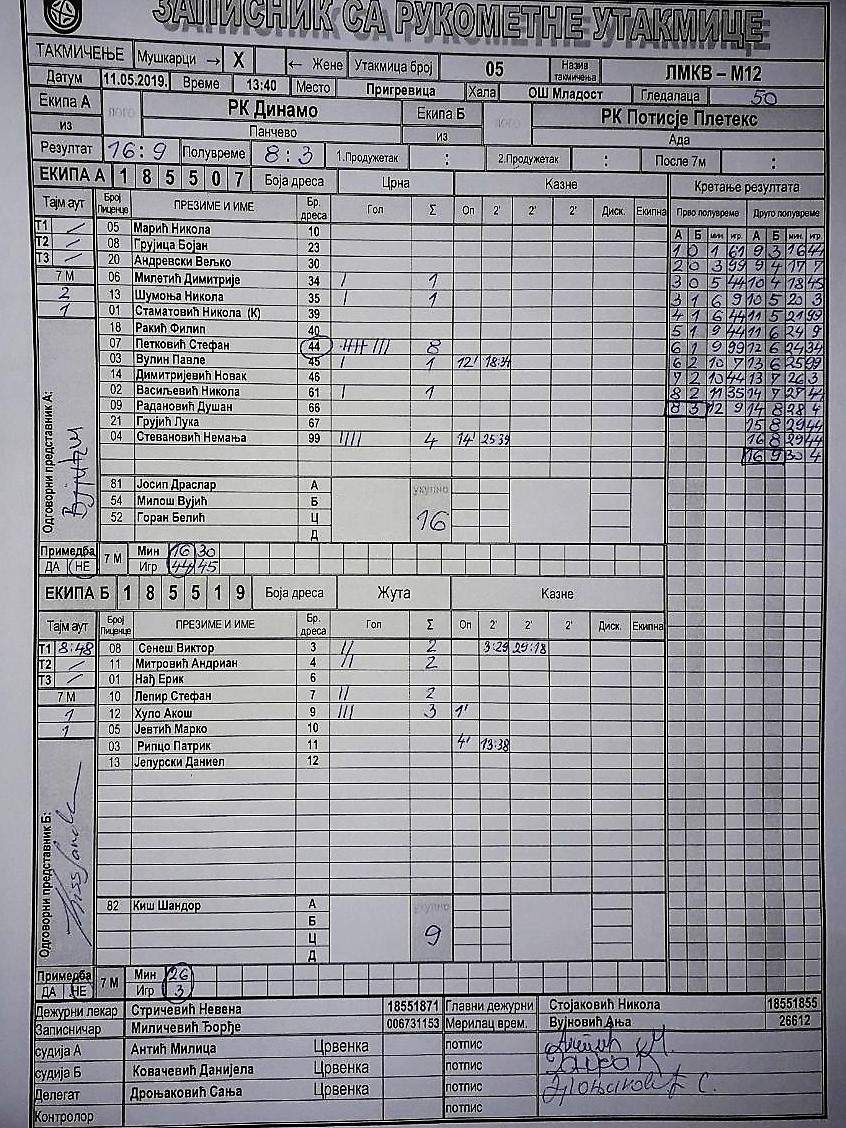 ЗАПИСНИК СА РУКОМЕТНЕ УТАКМИЦЕ
ТАКМИЧЕЊЕ Мушкарци → X ← Жене Утакмица број 05 Назив такмичења ЛМКВ – М12
Датум 11.05.2019. Време 13:40 Место Пригревица Хала ОШ Младост Гледалаца 50
Екипа А ЛОГО РК Динамо Екипа Б ЛОГО РК Потисје Плетекс
из Панчево из Ада
Резултат 16:9 Полувреме 8:3 1.Продужетак : 2.Продужетак : После 7м :
ЕКИПА А 1 8 5 5 0 7 Боја дреса Црна Казне Кретање резултата
Тајм аут Број Лиценце ПРЕЗИМЕ И ИМЕ Бр. дреса Гол Σ Оп 2' 2' 2' Диск. Екипна Прво полувреме Друго полувреме
А Б мин. игр. А Б мин. игр.
Т1 / 05 Марић Никола 10
Т2 / 08 Грујица Бојан 23
Т3 / 20 Андревски Вељко 30
7 М 06 Милетић Димитрије 34 / 1
2 13 Шумоња Никола 35 / 1
1 01 Стаматовић Никола (К) 39
18 Ракић Филип 40
07 Петковић Стефан 44 //// /// 8
03 Вулин Павле 45 / 1 12' 18:34
14 Димитријевић Новак 46
02 Васиљевић Никола 61 / 1
09 Радановић Душан 66
21 Грујић Лука 67
04 Стевановић Немања 99 //// 4 14' 25:39
1 0 1 61 9 3 16 44
2 0 3 99 9 4 17 7
3 0 5 44 10 4 18 45
3 1 6 9 10 5 20 3
4 1 6 44 11 5 21 99
5 1 9 44 11 6 24 9
6 1 9 99 12 6 24 34
6 2 10 7 13 6 25 99
7 2 10 44 13 7 26 3
8 2 11 35 14 7 27 44
8 3 12 9 14 8 28 4
15 8 29 44
16 8 29 44
16 9 30 4
Одговорни представник А:
81 Јосип Драслар А укупно
54 Милош Вујић Б 16
52 Горан Белић Ц
Д
Примедба 7 М Мин 16 30
ДА НЕ Игр 44 45
ЕКИПА Б 1 8 5 5 1 9 Боја дреса Жута Казне
Тајм аут Број Лиценце ПРЕЗИМЕ И ИМЕ Бр. дреса Гол Σ Оп 2' 2' 2' Диск. Екипна
Т1 8:48 08 Сенеш Виктор 3 // 2 3:29 29:18
Т2 / 11 Митровић Андриан 4 // 2
Т3 / 01 Нађ Ерик 6
7 М 10 Лепир Стефан 7 // 2
1 12 Хуло Акош 9 /// 3 1'
1 05 Јевтић Марко 10
03 Рипцо Патрик 11 4' 13:38
13 Јепурски Даниел 12
Одговорни представник Б: Kiss Sandor
82 Киш Шандор А укупно
Б 9
Ц
Д
Примедба 7 М Мин 26
ДА НЕ Игр 3
Дежурни лекар Стричевић Невена 18551871 Главни дежурни Стојаковић Никола 18551855
Записничар Миличевић Ђорђе 006731153 Мерилац врем. Вујновић Ања 26612
судија А Антић Милица Црвенка потпис
судија Б Ковачевић Данијела Црвенка потпис
Делегат Дроњаковић Сања Црвенка потпис
Контролор потпис